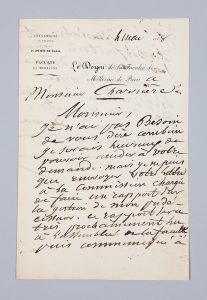 4 mai
FACULTÉ
DE MÉDECINE
Le Doyen de la Faculté de
Médecine de Paris
à
Monsieur Charrière
Monsieur,
Je n'ai pas besoin
de vous dire combien
je serais heureux de
pouvoir accéder à votre
demande, mais je ne puis
que envoyer votre lettre
à la commission chargée
de faire un rapport sur
la gestion de mon prédé-
cesseur. ce rapport sera
très prochainement lu
à l'assemblée de la faculté
puis communiqué à